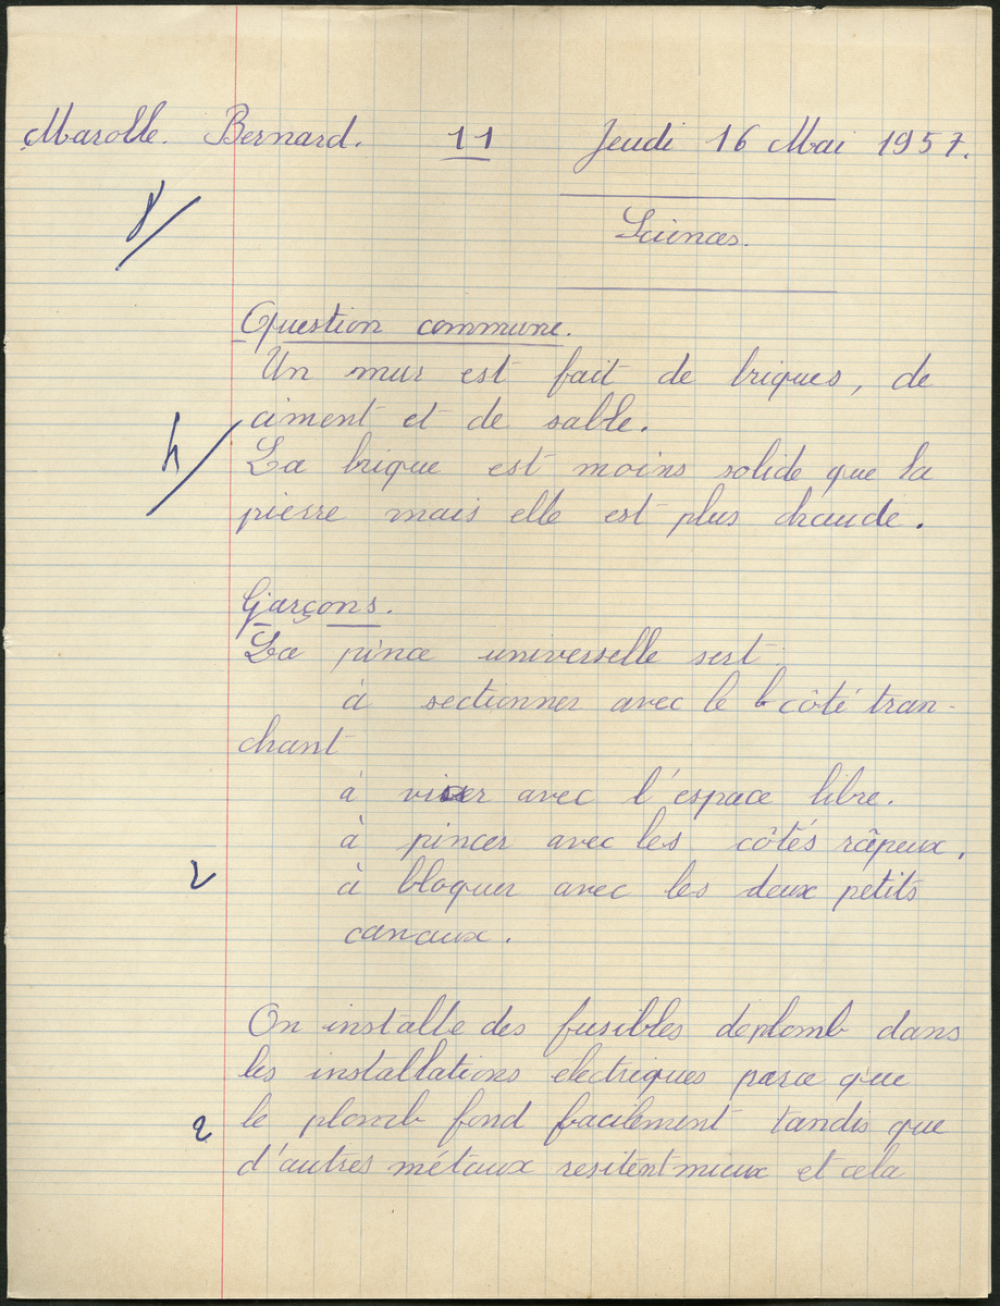 Marolle. Bernard. 11 Jeudi 16 Mai 1957.
8/
Sciences.
Question commune.
Un mur est fait de briques, de
ciment et de sable.
4/
La brique est moins solide que la
pierre mais elle est plus chaude.
Garçons.
La pince universelle sert :
à sectionner avec le côté tran-
chant
à visser avec l'espace libre.
à pincer avec les côtés râpeux.
2
à bloquer avec les deux petits
canaux.
On installe des fusibles de plomb dans
les installations électriques parce que
2
le plomb fond facilement tandis que
d'autres métaux resitent mieux et cela